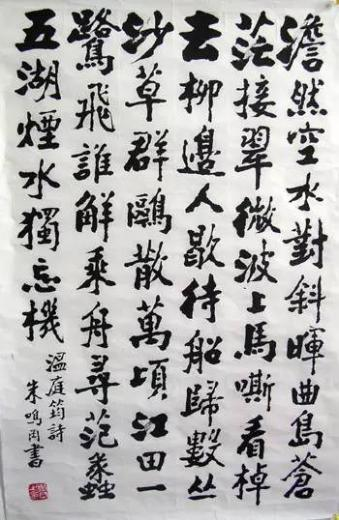 澹然空水對斜暉曲島蒼
茫接翠微波上馬嘶看棹
去柳邊人歇待船歸數丛
沙草群鷗散萬頃江田一
鷺飛誰解乘舟尋范蠡
五湖煙水獨忘機
溫庭筠詩
朱鳴岡書